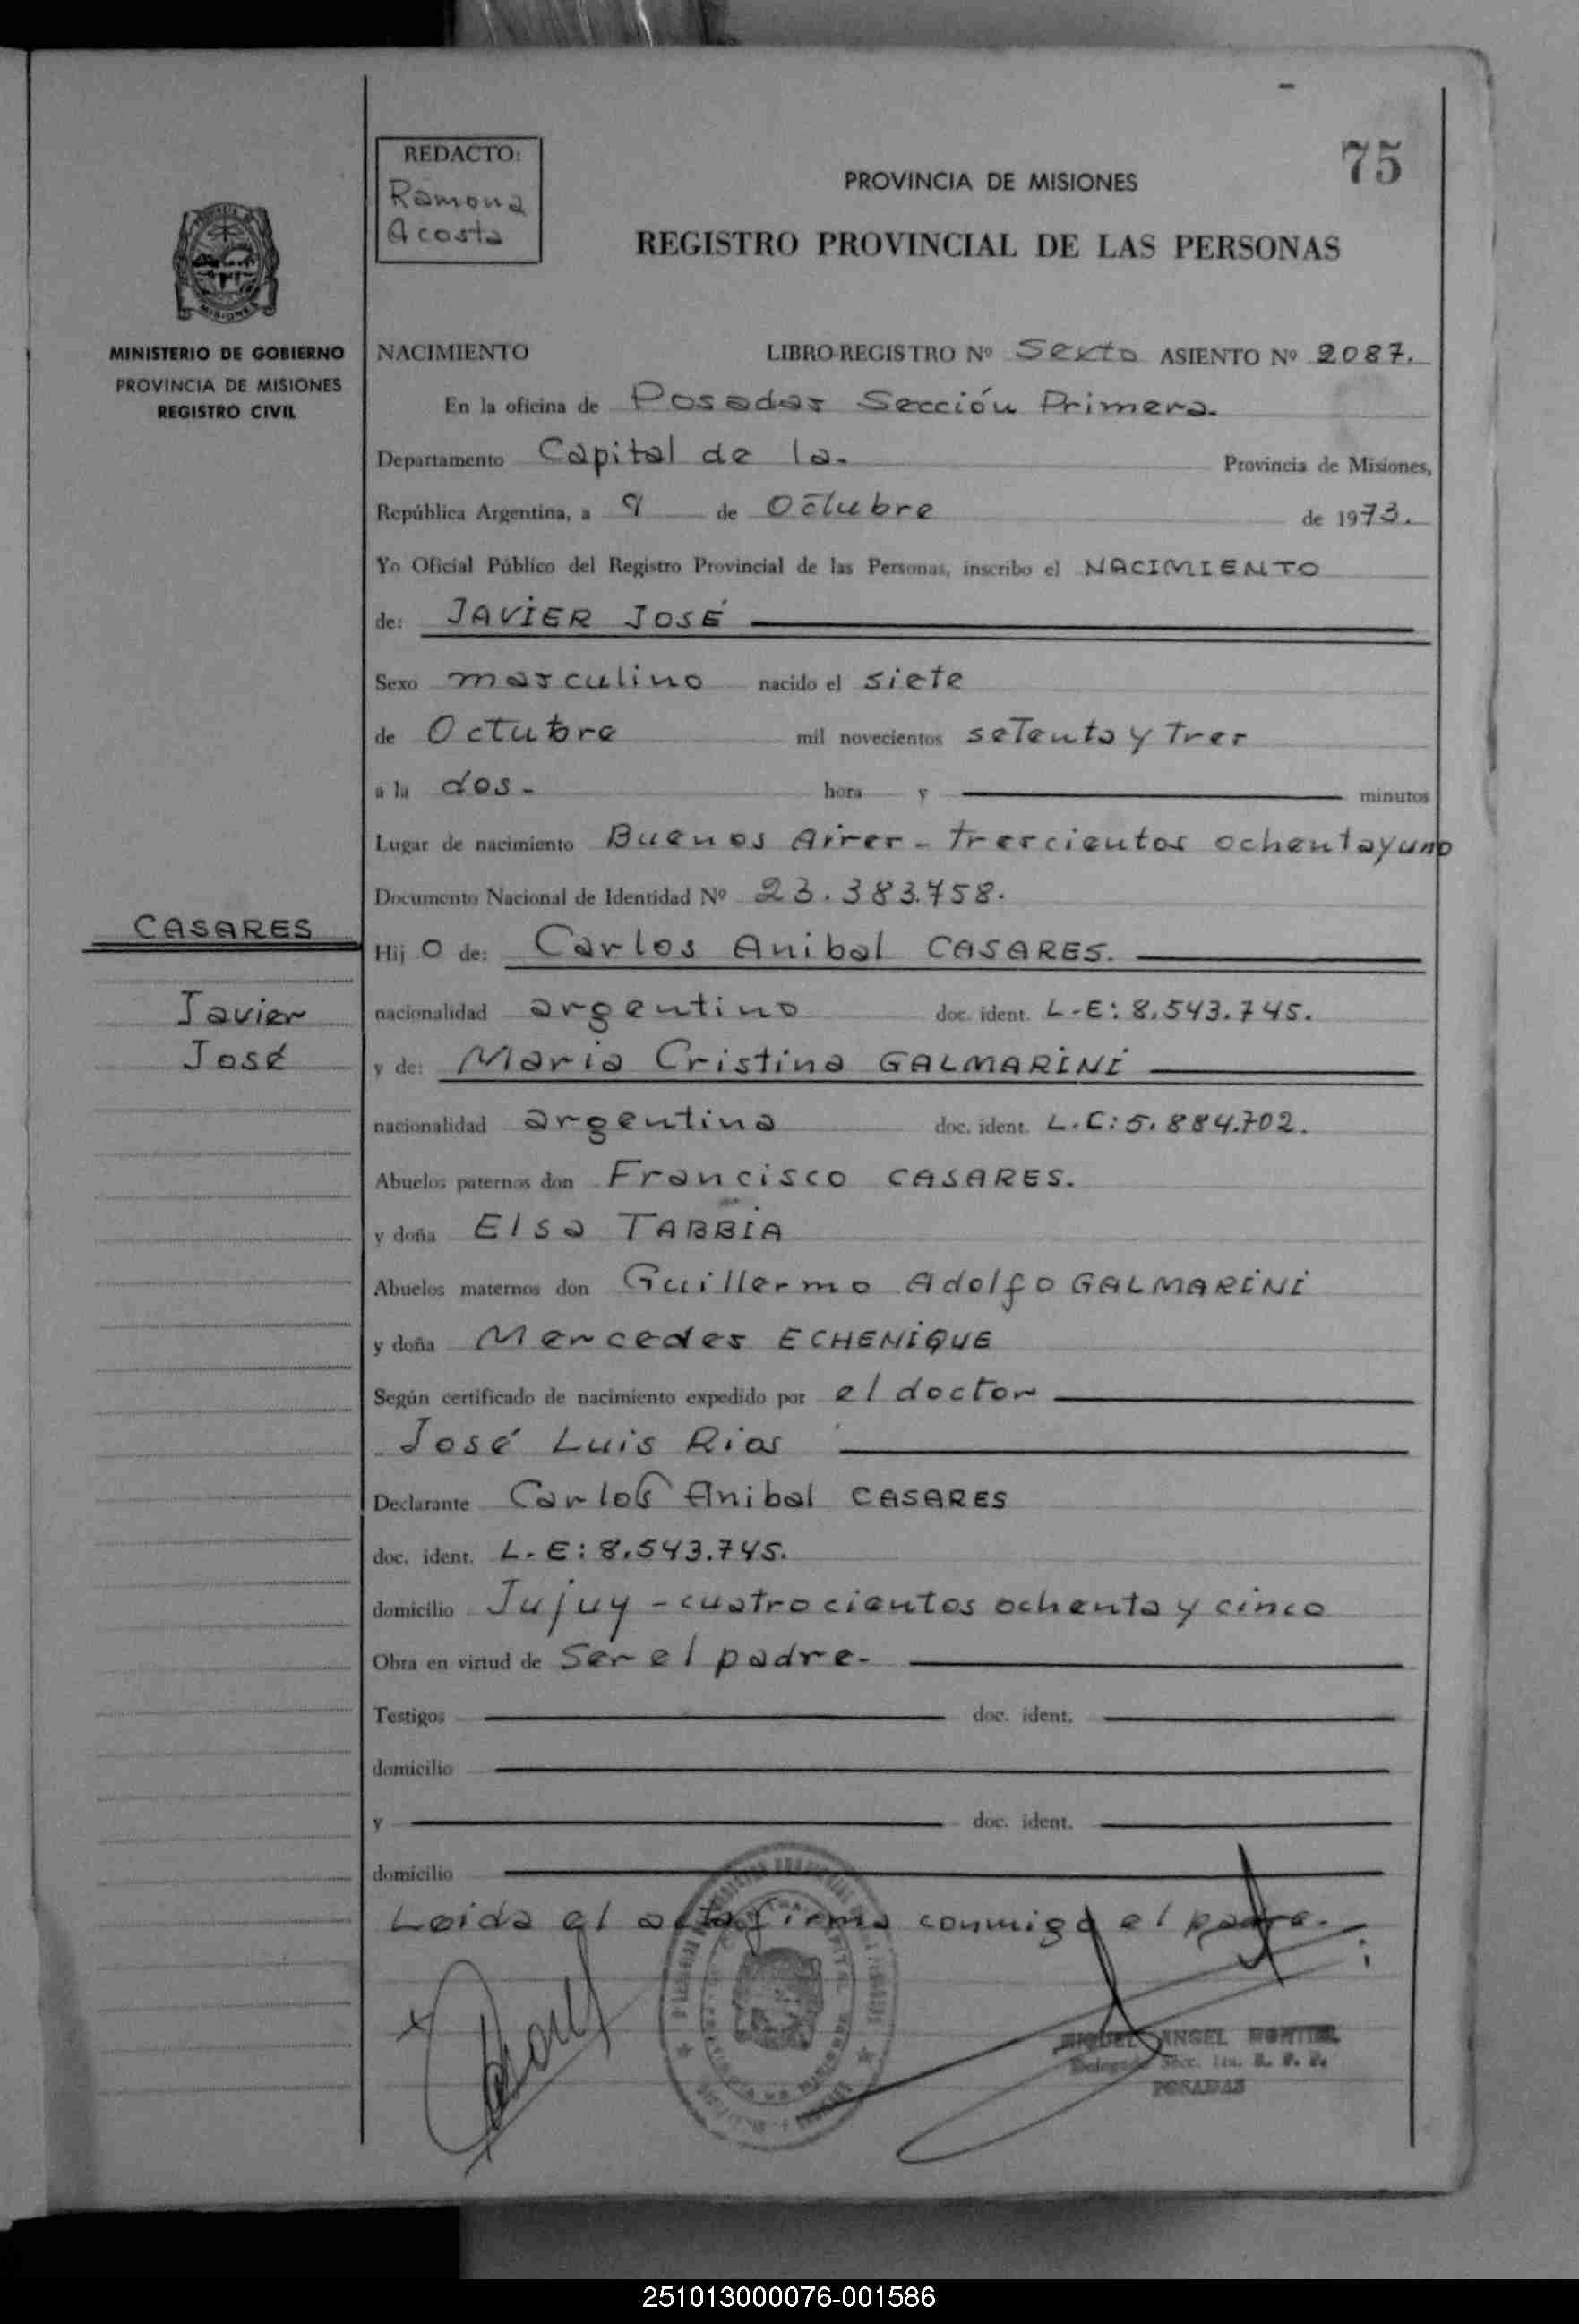 75
REDACTO:
Ramona
Acosta
PROVINCIA DE MISIONES
REGISTRO PROVINCIAL DE LAS PERSONAS
MISIONES
MINISTERIO DE GOBIERNO
PROVINCIA DE MISIONES
REGISTRO CIVIL
NACIMIENTO LIBRO-REGISTRO Nº Sexto ASIENTO Nº 2087.
En la oficina de Posadas Sección Primera.
Departamento Capital de la. Provincia de Misiones,
República Argentina, a 9 de Octubre de 1973.
Yo Oficial Público del Registro Provincial de las Personas, inscribo el NACIMIENTO
de: JAVIER JOSÉ
Sexo masculino nacido el siete
de Octubre mil novecientos setenta y tres
a la dos. hora y minutos
Lugar de nacimiento Buenos Aires - trescientos ochenta y uno
Documento Nacional de Identidad Nº 23.383.758.
CASARES
Hij o de: Carlos Anibal CASARES.
Javier
José
nacionalidad argentino doc. ident. L-E: 8.543.745.
y de: Maria Cristina GALMARINI
nacionalidad argentina doc. ident. L.C: 5.884.702.
Abuelos paternos don Francisco CASARES.
y doña Elsa TABBIA
Abuelos maternos don Guillermo Adolfo GALMARINI
y doña Mercedes ECHENIQUE
Según certificado de nacimiento expedido por el doctor
José Luis Rios
Declarante Carlos Anibal CASARES
doc. ident. L-E: 8.543.745.
domicilio Jujuy - cuatrocientos ochenta y cinco
Obra en virtud de Ser el padre.
Testigos doc. ident.
domicilio
y doc. ident.
domicilio
Leida el acta firma conmigo el padre.
MIGUEL ANGEL
Delegado Secc. 1ra. R. P. P.
POSADAS
251013000076-001586